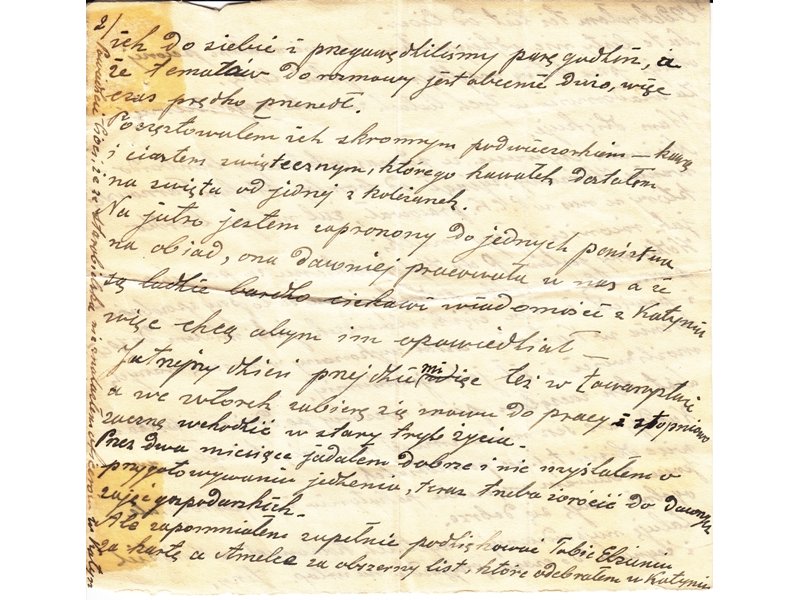 2/
ich do siebie i pregawędliliśmy parę godzin, a
że tematów do rozmowy jest obecnie dużo, więc
czas prędko prenedł.
Poczęstowałem ich skromnym podwieczorkiem – kawą
i ciastem świątecznym, którego kawałek dostałem
na święta od jednej z koleżanek.
Na jutro jestem zaprozony do jednych państwa
na obiad, ona dawniej pracowała u nas a że
są ludzie bardzo ciekawi wiadomości z Katynia
więc chcą abym im opowiedział –
Jutrejszy dzień prejdzie mi więc też w towarzystwie
a we wtorek zabiorę się znowu do pracy i stopniowo
zacznę wchodzić w stary tryb życia.
Przez dwa miesiące jadałem dobrze i nie myślałem o
przygotowywaniu jedzenia, teraz trzeba wrócić do dawnych
zajęć gospodarskich.
Ale zapomniałem zupełnie podziękować Tobie Elżuniu
za kartę a Amelce za obszerny list, które odebrałem w Katyniu